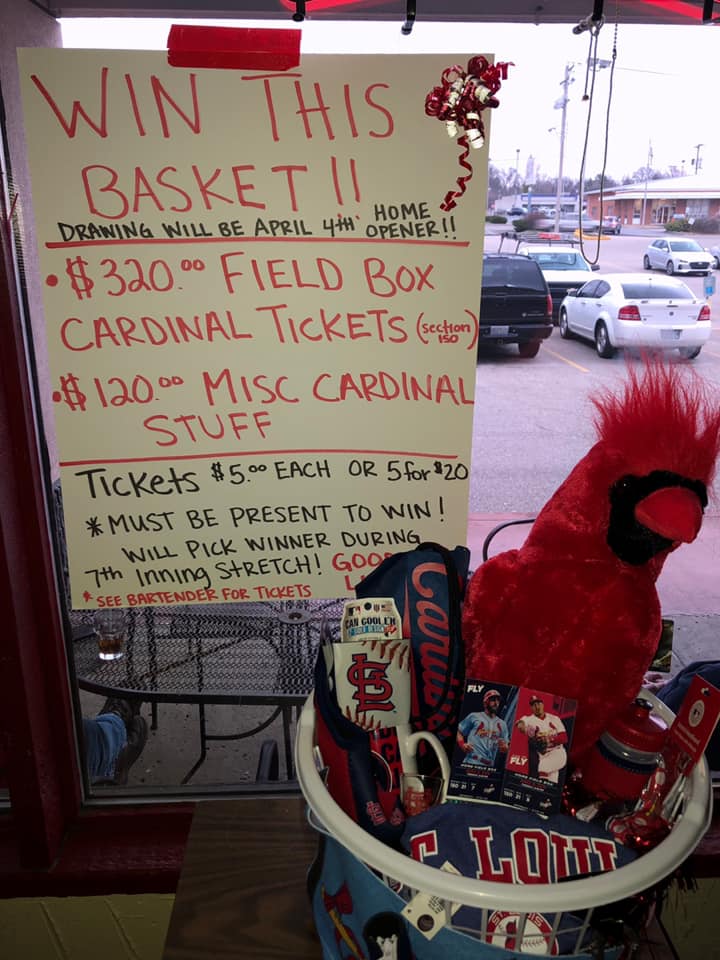 WIN THIS
BASKET!!
DRAWING WILL BE APRIL 4TH HOME OPENER!!
• $320.00 FIELD BOX
CARDINAL TICKETS (section 150)
• $120.00 MISC CARDINAL
STUFF
TICKETS $5.00 EACH OR 5 for $20
* MUST BE PRESENT TO WIN!
WILL PICK WINNER DURING
7th INNING STRETCH! GOO
L
* SEE BARTENDER FOR TICKETS
CAN COOLER
Cardin
StL
FLY
FLY
LOUI